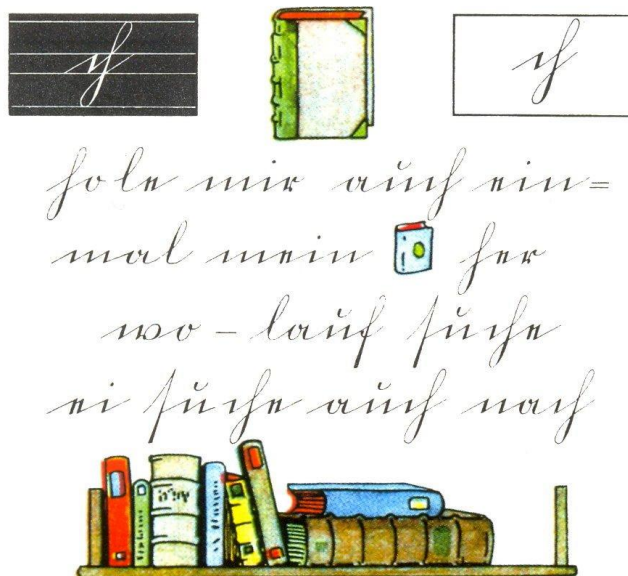 ch ch
hole mir auch ein=
mal mein her
wo – lauf suche
ei suche auch nach